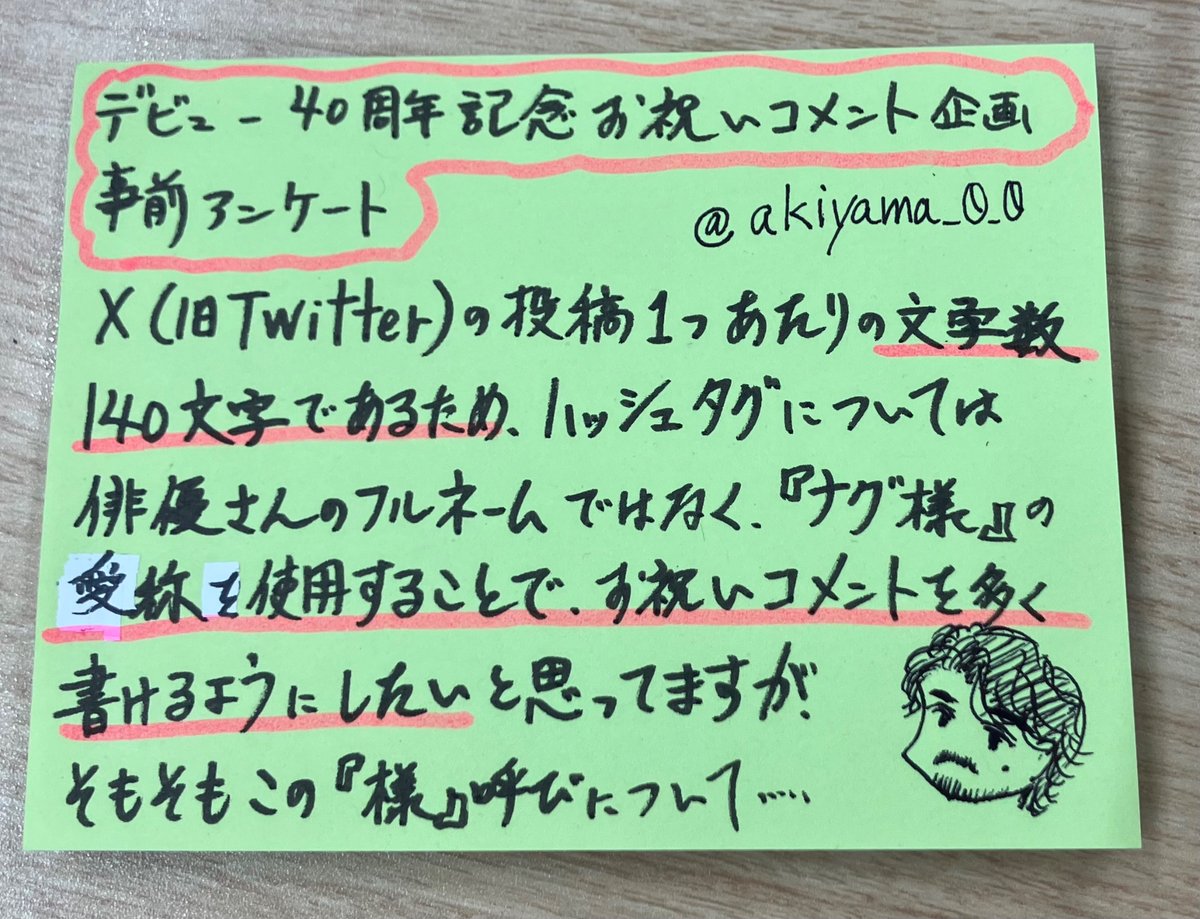 デビュー40周年記念お祝いコメント企画
事前アンケート
@akiyama_0_0
X(旧Twitter)の投稿1つあたりの文字数
140文字であるため、ハッシュタグについては
俳優さんのフルネームではなく、『ナグ様』の
愛称を使用することで、お祝いコメントを多く
書けるようにしたいと思ってますが、
そもそもこの『様』呼びについて……